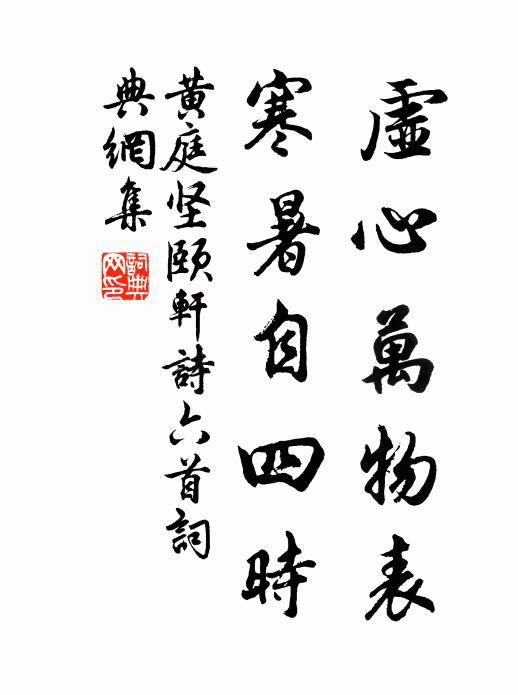 虛心萬物表
寒暑自四時
黃庭坚頤軒詩六首詞
典網集
詞典
网印